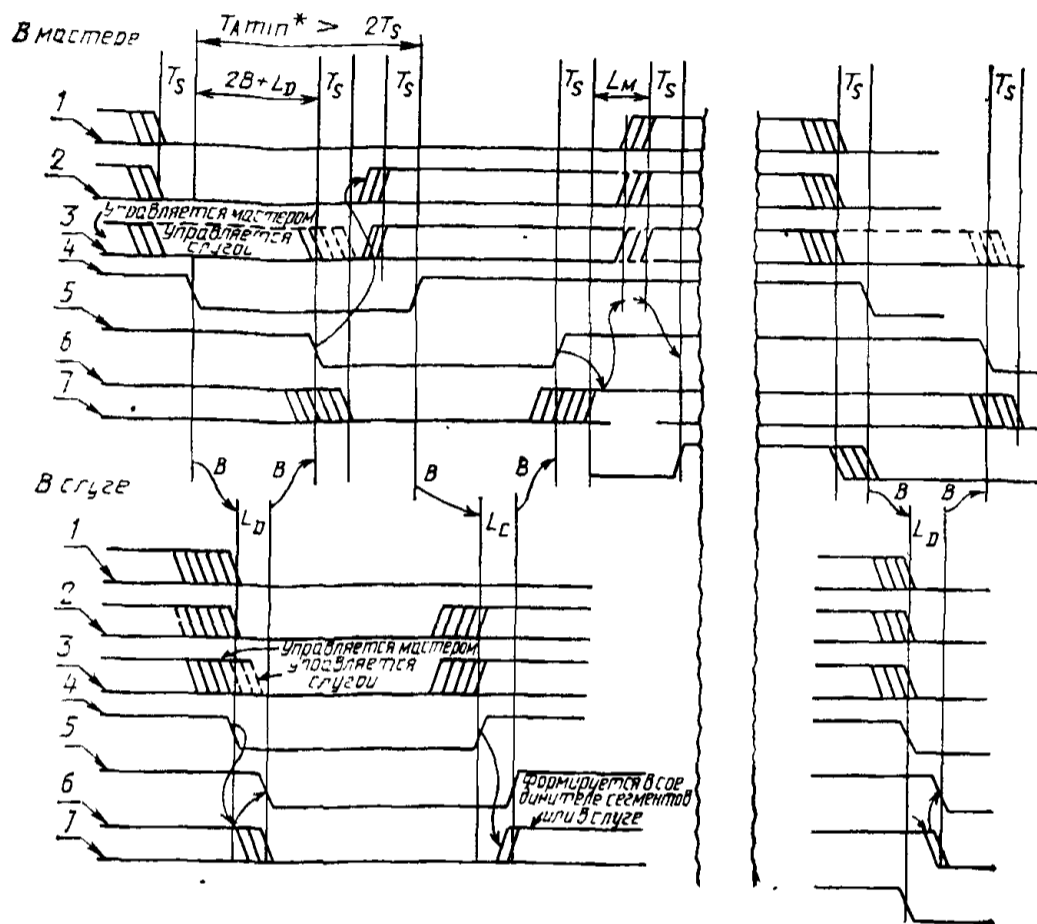 В мастере
TАmin* > 2TS
TS 2B+LD TS TS TS LM TS TS TS
1
2
Управляется мастером
3
Управляется
слугой
4
5
6
7
B B B B B B
В слуге
LD LC LD
1
2
Управляется мастером
3
Управляется
слугой
4
5
Формируется в сое
динителе сегментов
или в слуге
6
7